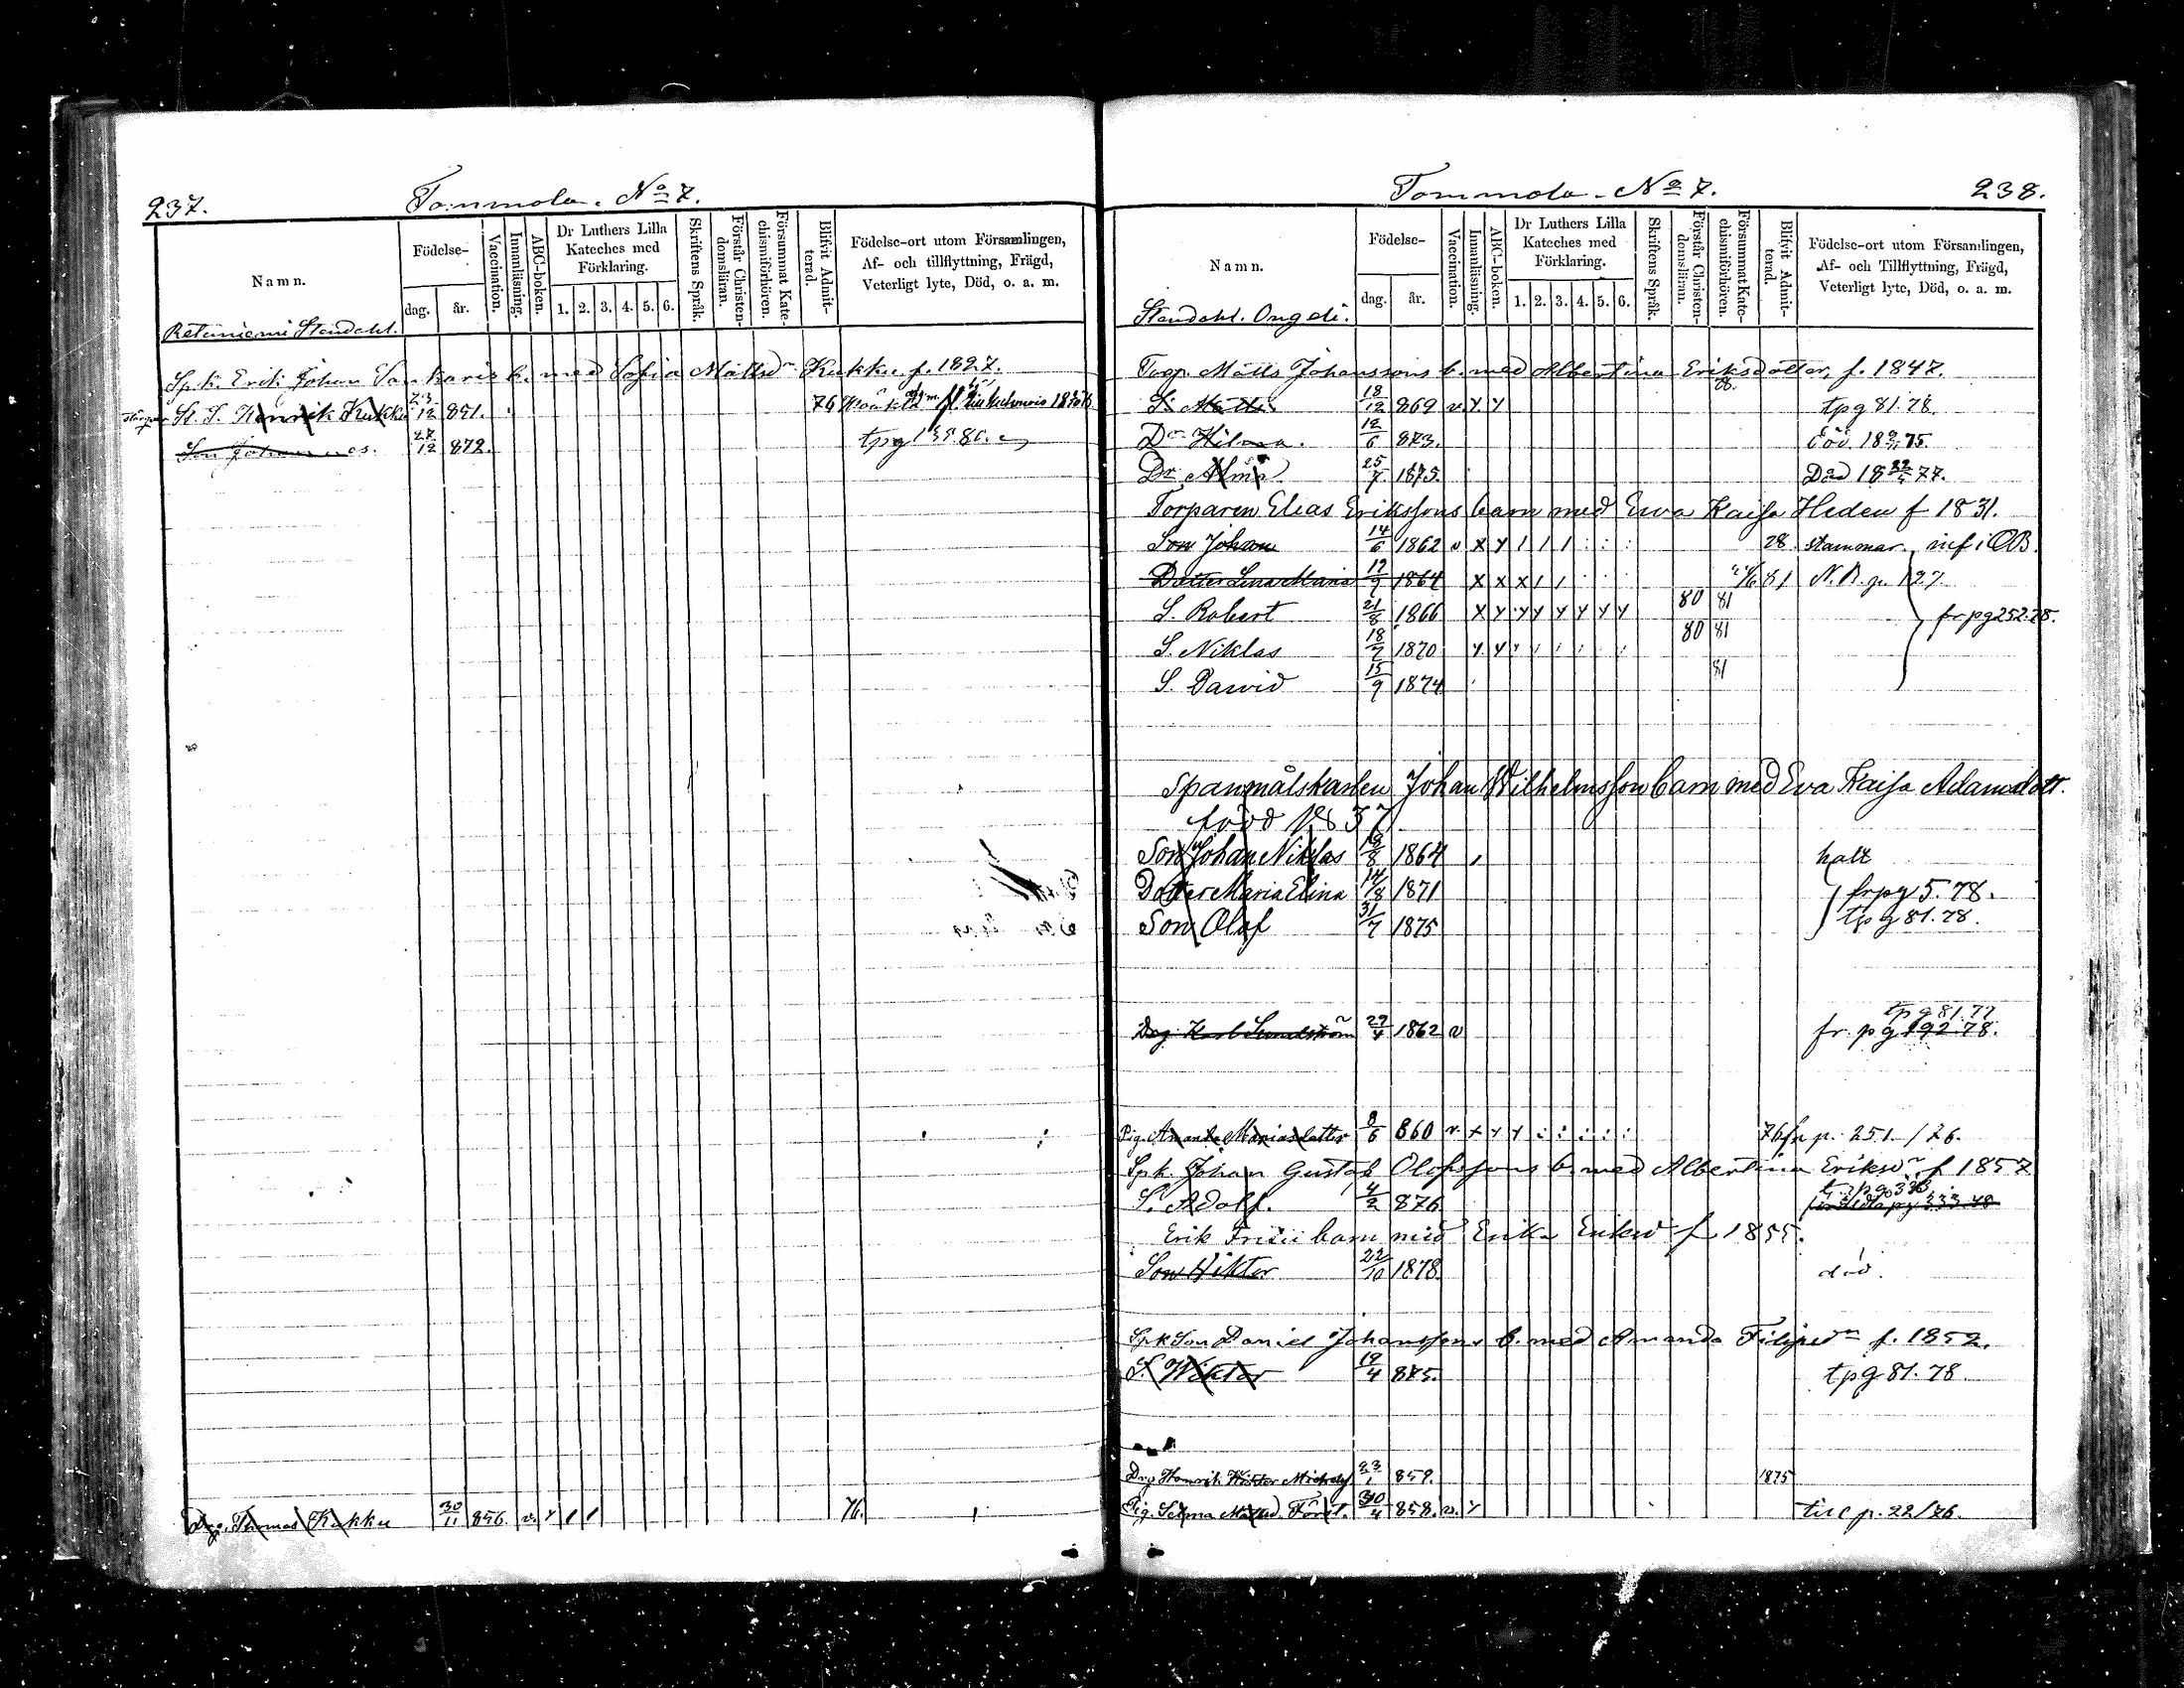 237.
Tommola. No 7.
Namn.
Födelse-
dag.
år.
Vaccination.
Innanläsning.
ABC-boken.
Dr Luthers Lilla Kateches med Förklaring.
1. 2. 3. 4. 5. 6.
Skriftens Språk.
Förstår Christendomsläran.
Försummat Katechismiförhören.
Blifvit Admitterad.
Födelse-ort utom Församlingen, Af- och tillflyttning, Frägd, Veterligt lyte, Död, o. a. m.
Retuniemi Stendahl.
Sp.k. Erik Johan b. med Sofia Mattsdr Kukku f. 1827.
St. S. Henrik Kukku 23/12 851. 76
Son Johannes. 27/12 872.
Drg. Thomas Kukku 30/11 856. v. 76.
Tommola. No 7.
238.
Namn.
Födelse-
dag.
år.
Vaccination.
Innanläsning.
ABC-boken.
Dr Luthers Lilla Kateches med Förklaring.
1. 2. 3. 4. 5. 6.
Skriftens Språk.
Förstår Christendomsläran.
Försummat Katechismiförhören.
Blifvit Admitterad.
Födelse-ort utom Församlingen, Af- och Tillflyttning, Frägd, Veterligt lyte, Död, o. a. m.
Stendahl. Ongdi.
Torp. Matts Johanssons b. med Albertina Eriksdotter, f. 1847.
S. Matts 18/12 869 v y y tpg 81.78.
Dr Hilma. 12/6 873.
Dr Alma 25/7 1875. Död 18 22/ 77.
Torparen Elias Erikssons barn med Ewa Kaisa Heden f 1831.
Son Johan 14/6 1862 v x y 28 stammar.
Dotter Lena Maria 12/9 1864 x x x 81 N.B. p. 127
S. Robert 21/8 1866 x y y y y y y y 80 81 fr pg 252.78.
S. Niklas 18/7 1870 y y 80 81
S. Dawid 15/9 1874 81
Spanmålskarlen Johan Wilhelmsson barn med Eva Kaisa Adamsdott.
född 1837
Son Johan Niklas 1864 halt
Dotter Maria Elina 14/8 1871 fr pg 5.78.
Son Olof 31/7 1875 tpg 81.78.
tpg 81.77
Drg Karl Sundström 29/4 1862 v fr. pg 192.78.
Pig. Amanda Mariasdatter 8/6 860 v. x y y 76 fr p. 251./76.
Spk. Johan Gustaf Olofssons b. med Albertina Eriksdr f 1857
S. Adolf. 4/2 876
Erik barn med Erika Eriksd f 1855.
Son Viktor 22/10 1878 död.
Spk Son Daniel Johanssons b. med Amanda Filipsdr f. 1852.
S. Wiktor 19/4 875. tpg 81.78
Drg Henrik 23/1 859. 1875
Pig. Selma 30/4 858. v. y till p. 22/76.